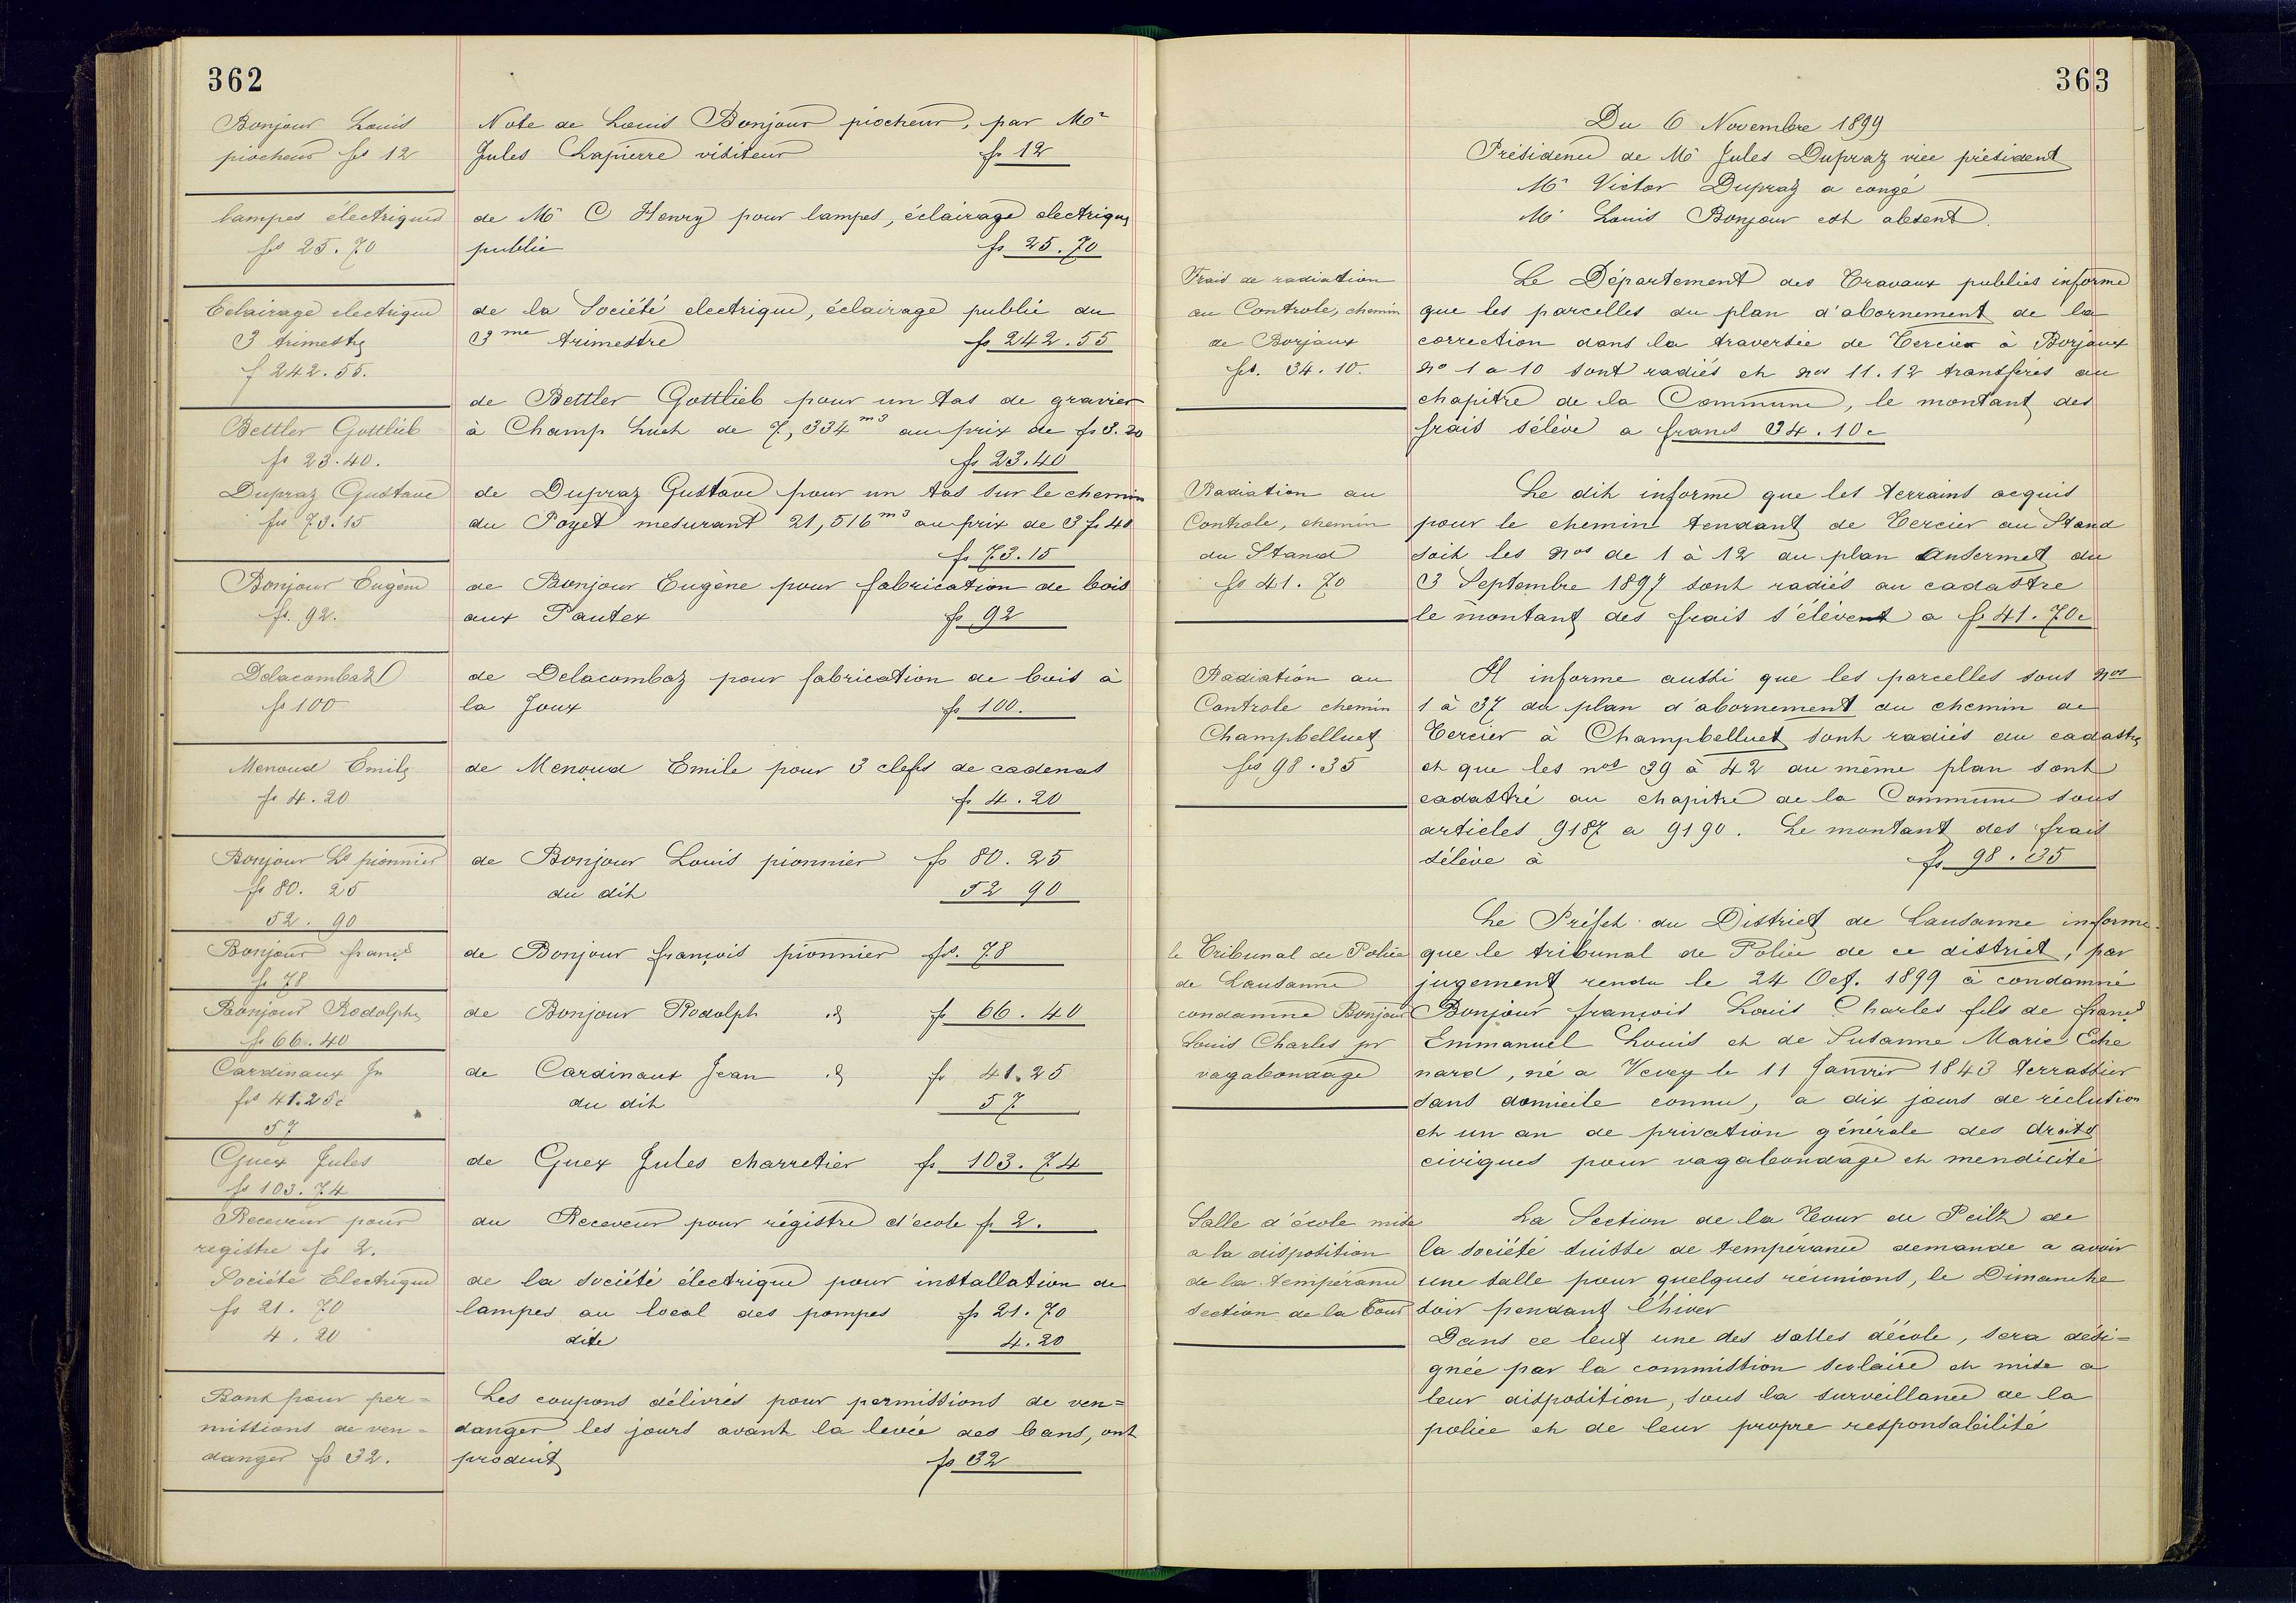 362
Bonjour Louis
piocheur frs 12
Note de Louis Bonjour piocheur, par Mr
Jules Lapierre visiteur fr 12
lampes électriques
frs 25.70
de Mr C Henry pour lampes, éclairage electrique
public fr 25.70
Eclairage electrique
3 trimestre
f 242.55.
de la Société electrique, éclairage public du
3me trimestre fr 242.55
Bettler Gottlieb
fr 23.40.
de Bettler Gottlieb pour un tas de gravier
à Champ Luch de 7,334 m3 au prix de fr 3.20
fr 23.40
Dupraz Gustave
frs 73.15
de Dupraz Gustave pour un tas sur le chemin
du Poyet mesurant 21,516 m3 au prix de 3 fr 40
fr 73.15
Bonjour Eugène
fr. 92.
de Bonjour Eugène pour fabrication de bois
aux Pautex fr 92
Delacombaz
fr 100
de Delacombaz pour fabrication de bois à
la Joux fr 100.
Menoud Emile
fr 4.20
de Menoud Emile pour 3 clefs de cadenas
fr 4.20
Bonjour Ls pionnier
fr 80. 25
52. 90
de Bonjour Louis pionnier fr 80. 25
du dit 52 90
Bonjour françs
fr 78
de Bonjour françois pionnier frs. 78
Bonjour Rodolphe
fr 66.40
de Bonjour Rodolph d fr 66.40
Cardinaux Jn
frs 41.25c
57
de Cardinaux Jean d fr 41.25
du dit 57
Guex Jules
fr 103.74
de Guex Jules charretier fr 103.74
Receveur pour
registre fr 2.
du Receveur pour régistre d'école fr 2.
Société Electrique
fr 21. 70
4. 20
de la société électrique pour installation de
lampes au local des pompes fr 21.70
dite 4.20
Bons pour per=
missions de ven=
danger fr 32.
Les coupons délivrés pour permissions de ven=
danger les jours avant la levée des bans, ont
produit fr 32
363
Du 6 Novembre 1899
Présidence de Mr Jules Dupraz vice président
Mr Victor Dupraz a congé
Mr Louis Bonjour est absent.
Frais de radiation
au Controle, chemin
de Borjaux
frs. 34.10.
Le Département des Travaux publics informe
que les parcelles du plan d'abornement de la
correction dans la traversée de Tercier à Borjaux
no 1 a 10 sont radiés et nos 11.12 transférés au
chapitre de la Commune, le montant des
frais s'élève a francs 34.10c
Radiation au
Controle, chemin
du Stand
fr 41. 70
Le dit informe que les terrains acquis
pour le chemin tendant de Tercier au Stand
soit les nos de 1 à 12 du plan Ansermet du
3 Septembre 1897 sont radiés au cadastre
le montant des frais s'élèvent a fr 41.70c
Radiation au
Controle chemin
Champbelluet
frs 98.35
Il informe aussi que les parcelles sous nos
1 à 37 du plan d'abornement du chemin de
Tercier à Champbelluet sont radiés au cadastre
et que les nos 39 à 42 du même plan sont
cadastré au chapitre de la Commune sous
articles 9187 a 9190. Le montant des frais
s'élève à fr 98.35
le Tribunal de Police
de Lausanne
condamne Bonjour
Louis Charles pr
vagabondage
Le Préfet du District de Lausanne informe
que le tribunal de Police de ce district, par
jugement rendu le 24 Oct. 1899 à condamné
Bonjour françois Louis Charles fils de françs
Emmanuel Louis et de Susanne Marie Eche
nard, né a Vevey le 11 Janvier 1843 terrassier
sans domicile connu, a dix jours de réclusion
et un an de privation générale des droits
civiques pour vagabondage et mendicité
Salle d'école mise
a la disposition
de la tempérance
section de la Tour
La Section de la Tour de Peilz de
la société suisse de tempérance demande a avoir
une salle pour quelques réunions, le Dimanche
soir pendant l'hiver
Dans ce but une des salles d'école, sera dési=
gnée par la commission scolaire et mise a
leur disposition, sous la surveillance de la
police et de leur propre responsabilité